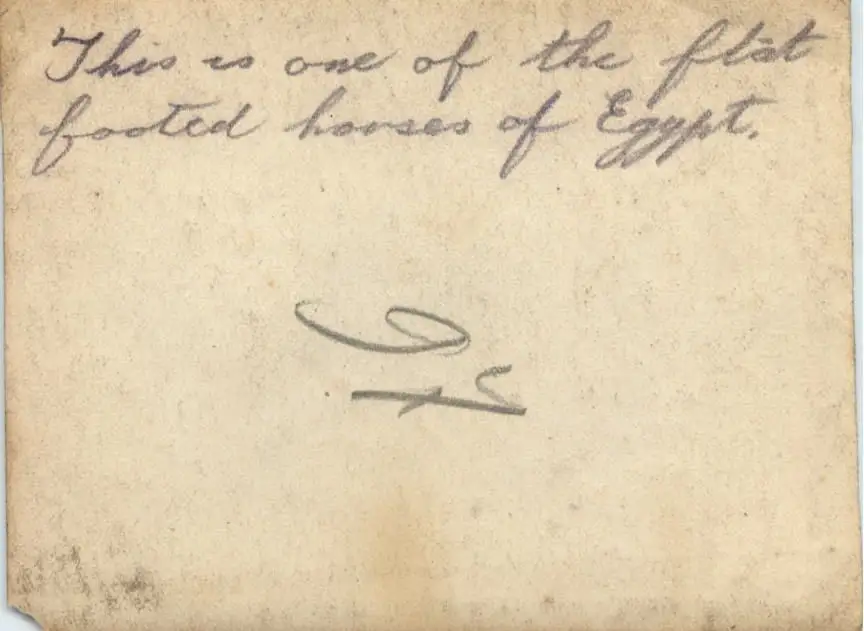 This is one of the flat
footed horses of Egypt.